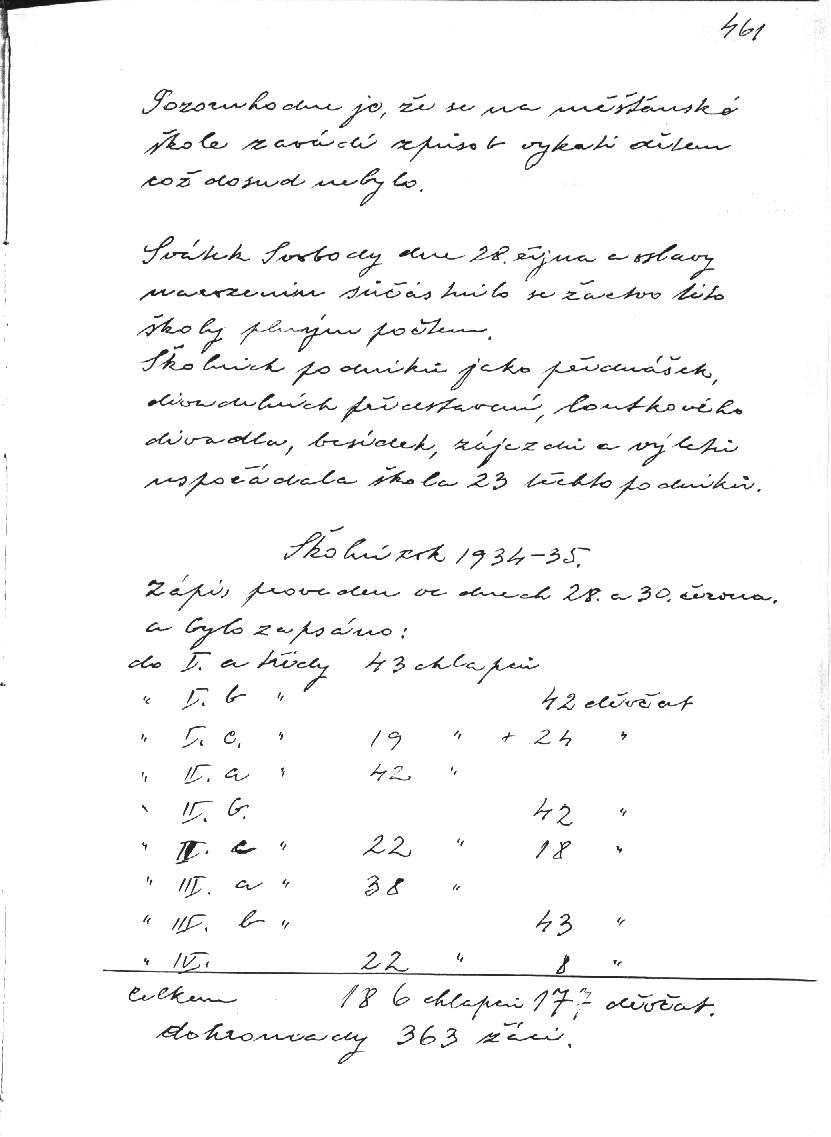 461
Pozoruhodne je, že se na měšťanské
škole zavádí způsob vykati dětem
což dosud nebylo.
Svátek Svobody dne 28. října a oslavy
narozenin súčástnilo se žactvo této
školy plným počtem.
Školních podniků jako přednášek,
divadelních představení, loutkového
divadla, besídek, zájezdů a výletů
uspořádala škola 23 těchto podniků.
Školní rok 1934-35.
Zápis proveden ve dnech 28. a 30. června.
a bylo zapsáno:
do I. a třídy 43 chlapců
" I. b " 42 děvčat
" I. c. " 19 " + 24 "
" II. a " 42 "
" II. b. 42 "
" II. c " 22 " 18 "
" III. a " 38 "
" III. b " 43 "
" IV. 22 " 8 "
Celkem 186 chlapců 177 děvčat.
dohromady 363 žáci.